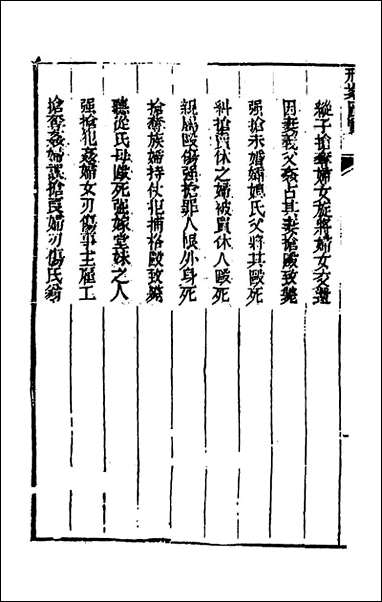 刑案匯覽
縱子搶奪婦女旋將婦女交還
因妻義父姦占其妻搶毆致斃
强搶未婚孀媳氏父將其毆死
糾搶買休之婦被買休人毆死
親屬毆傷强搶罪人限外身死
搶奪族婦持仗犯捕格毆致斃
聽從氏母毆死强嫁堂妹之人
强搶犯姦婦女刃傷事主雇工
搶奪姦婦誤搶良婦刃傷氏翁